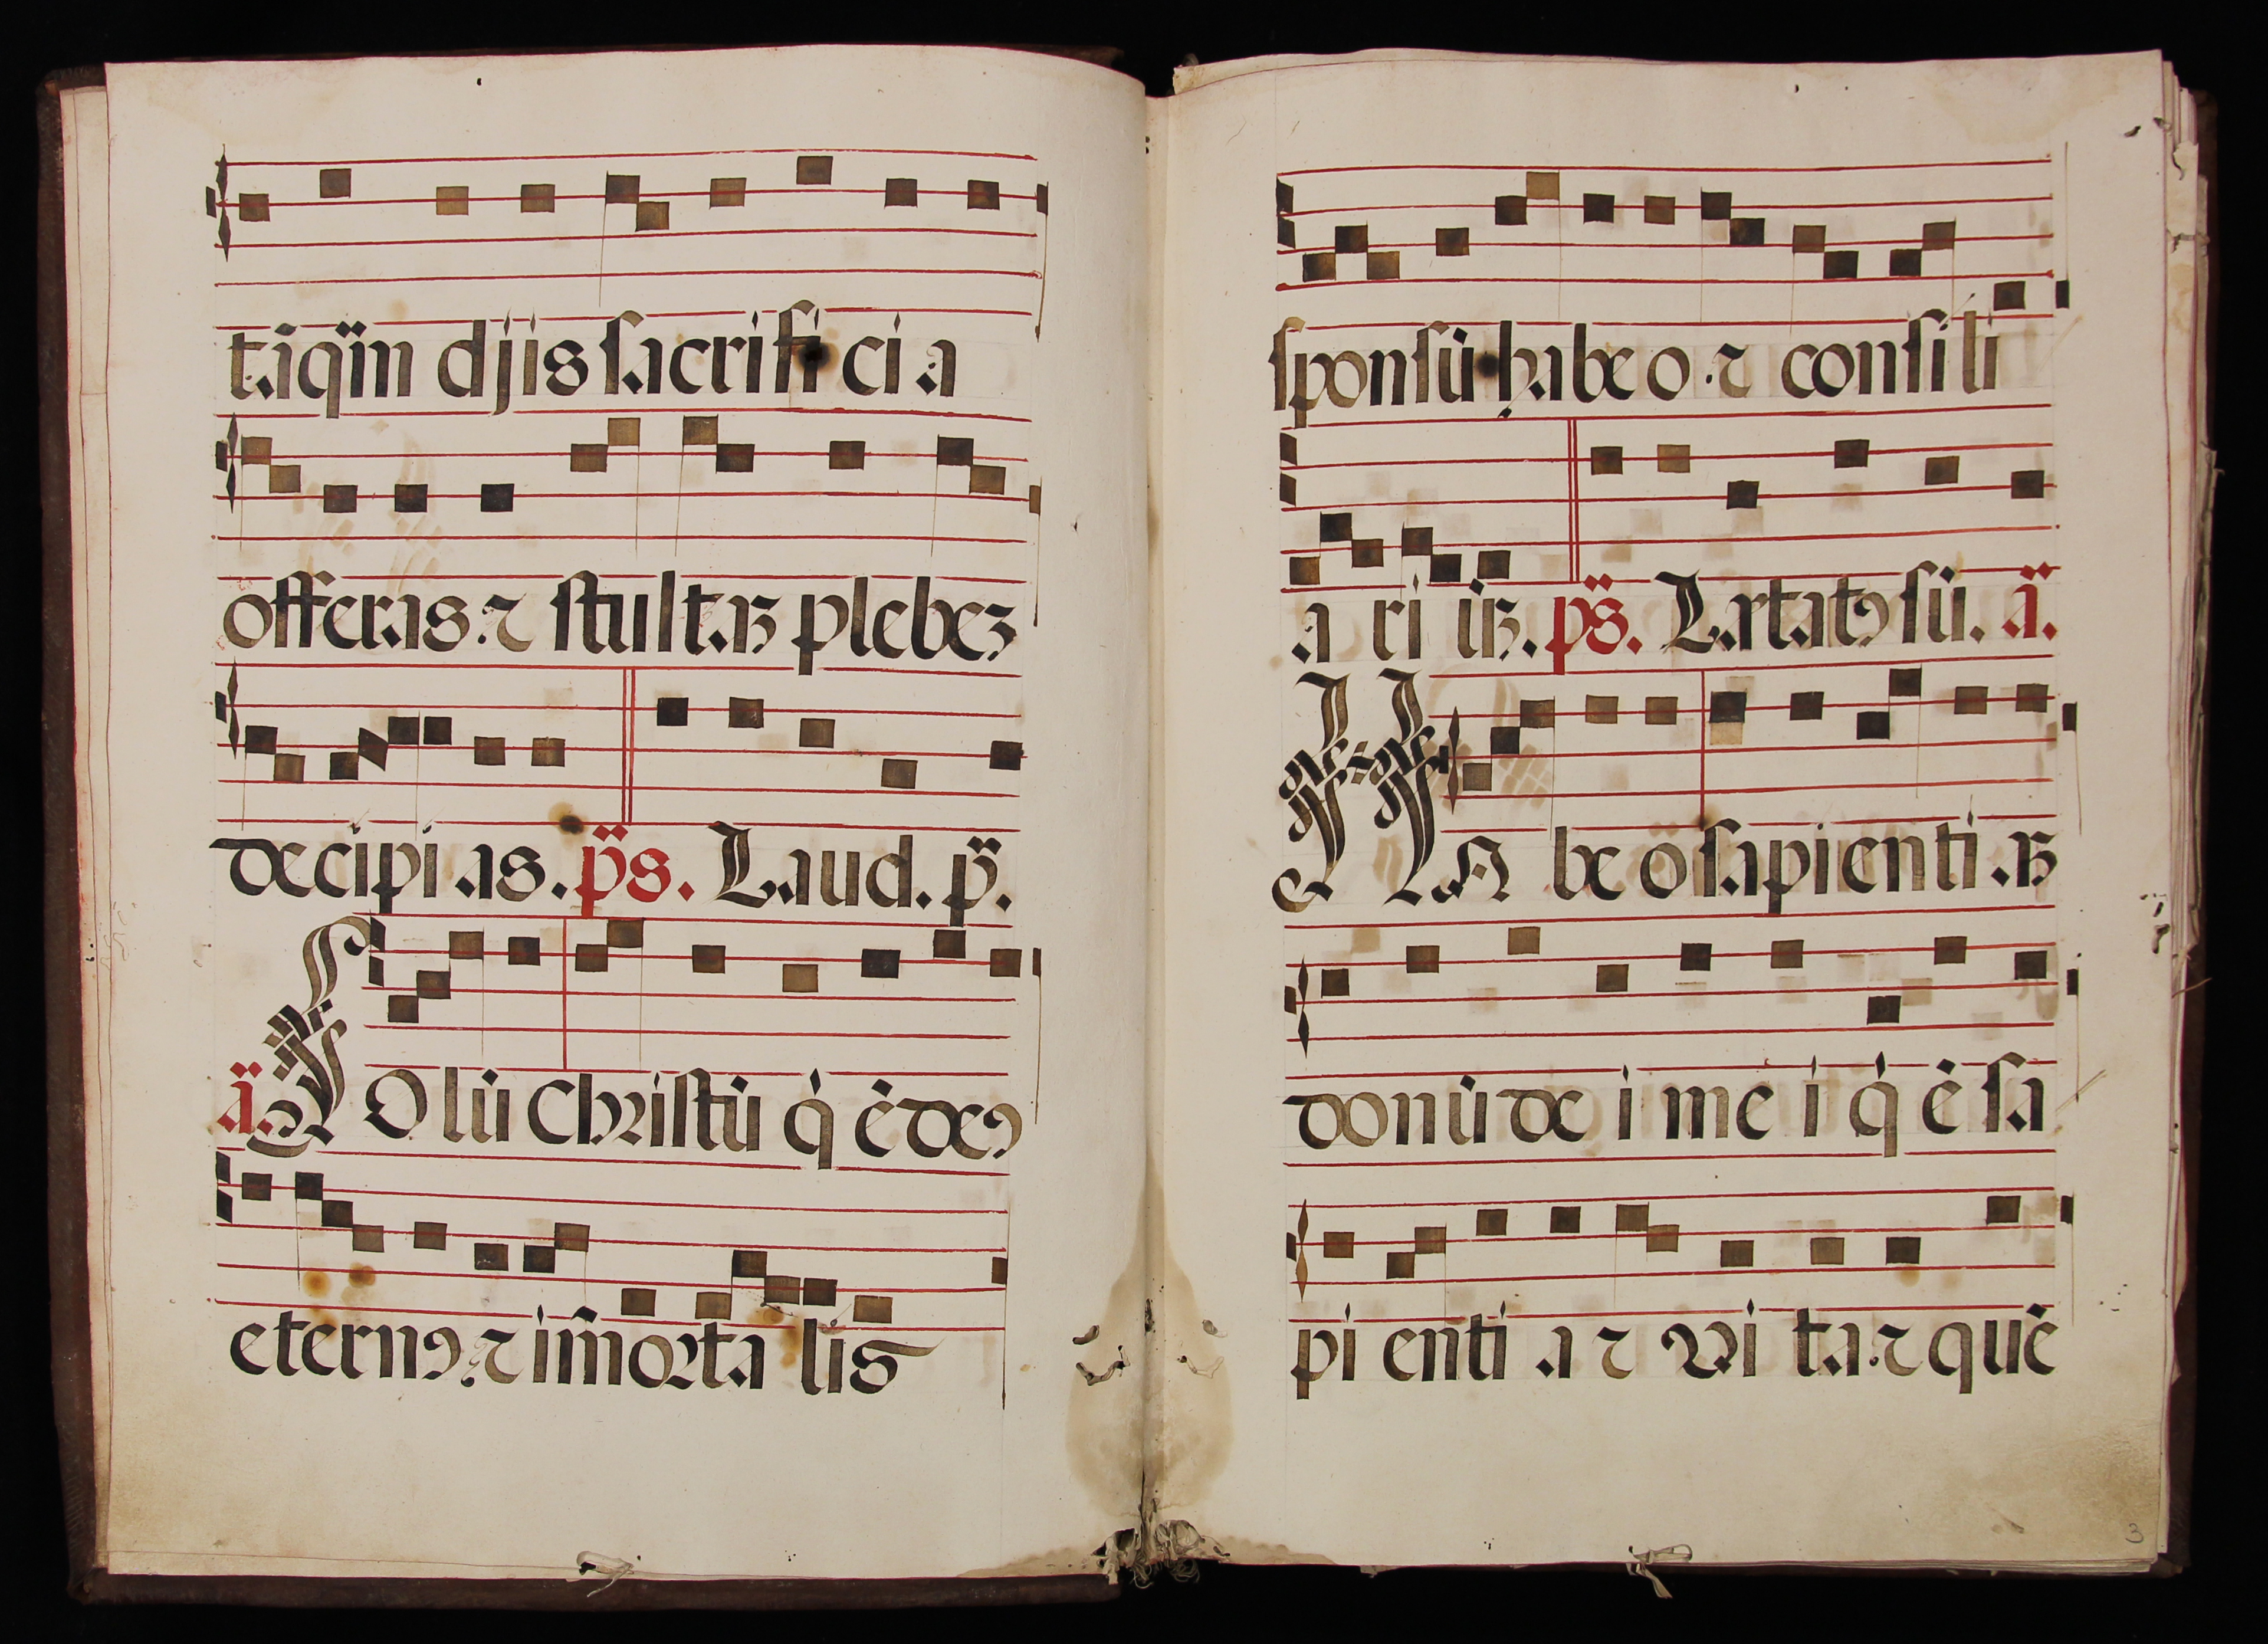 taq̃m djis sacrifici a
offeras ⁊ stultaꝫ plebeꝫ
decipi as. ps̃. Laud. p̃.
ã. SOlũ Christũ q̇ ẽ deꝰ
eternꝰ ⁊ im̃orta lis
sponsũ habeo ⁊ consili
a ri uꝫ. ps̃. Letatꝰ sũ. ã.
HA be õ sapienti aꝫ
donũ de i me i q̇ ẽ sa
pi enti a ⁊ vi ta ⁊ quẽ
3